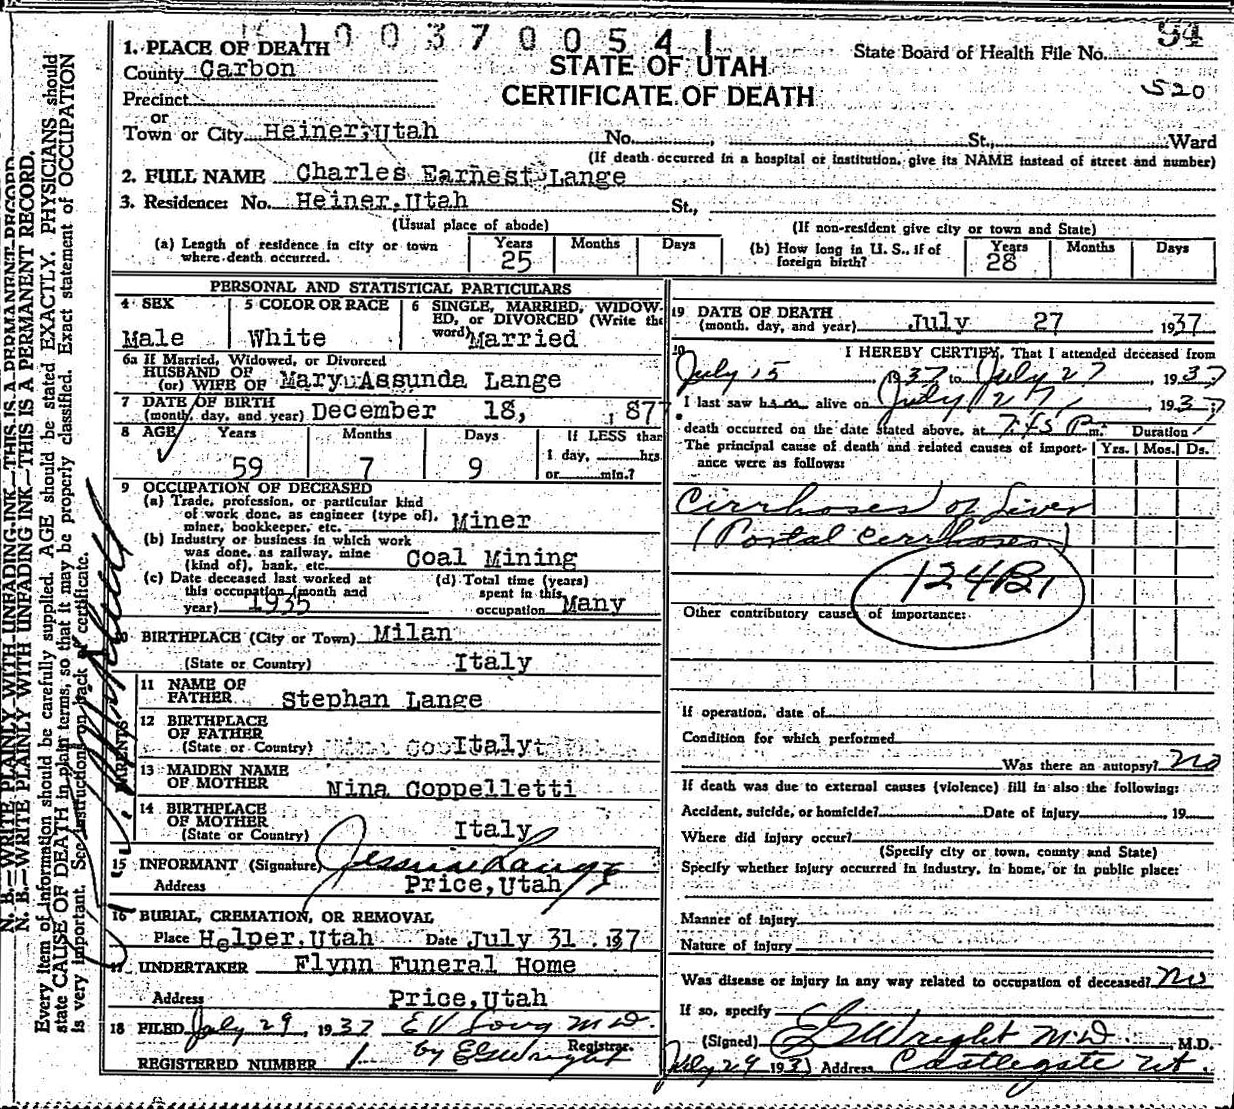 1 0 0 3 7 0 0 5 4 1
1. PLACE OF DEATH
State Board of Health File No. 94
County Carbon
STATE OF UTAH
520
Precinct
CERTIFICATE OF DEATH
or
Town or City Heiner, Utah No. , St., Ward
(If death occurred in a hospital or institution, give its NAME instead of street and number)
2. FULL NAME Charles Earnest Lange
3. Residence: No. Heiner, Utah St.,
(Usual place of abode) (If non-resident give city or town and State)
(a) Length of residence in city or town where death occurred. Years 25 Months Days
(b) How long in U. S., if of foreign birth? Years 28 Months Days
PERSONAL AND STATISTICAL PARTICULARS
4 SEX 5 COLOR OR RACE 6 SINGLE, MARRIED, WIDOW-
ED, or DIVORCED (Write the
word)
Male White Married
6a If Married, Widowed, or Divorced
HUSBAND OF
(or) WIFE OF Mary Assunda Lange
7 DATE OF BIRTH
(month, day, and year) December 18, 1877
8 AGE Years Months Days If LESS than
1 day, hrs.
59 7 9 or min.?
9 OCCUPATION OF DECEASED
(a) Trade, profession, or particular kind
of work done, as engineer (type of),
miner, bookkeeper, etc. Miner
(b) Industry or business in which work
was done, as railway, mine
(kind of), bank, etc. Coal Mining
(c) Date deceased last worked at
this occupation (month and
year) 1935
(d) Total time (years)
spent in this
occupation Many
10 BIRTHPLACE (City or Town) Milan
(State or Country) Italy
PARENTS
11 NAME OF
FATHER Stephan Lange
12 BIRTHPLACE
OF FATHER
(State or Country) Italy
13 MAIDEN NAME
OF MOTHER Nina Coppelletti
14 BIRTHPLACE
OF MOTHER
(State or Country) Italy
15 INFORMANT (Signature) Jessie Lange
Address Price, Utah
16 BURIAL, CREMATION, OR REMOVAL
Place Helper, Utah Date July 31, 1937
17 UNDERTAKER Flynn Funeral Home
Address Price, Utah
18 FILED July 29, 1937 E V Long M.D.
Registrar.
REGISTERED NUMBER 1 by EGWright
19 DATE OF DEATH
(month, day, and year) July 27 1937
20 I HEREBY CERTIFY, That I attended deceased from
July 15 1937 to July 27, 1937
I last saw him alive on July 27, 1937
death occurred on the date stated above, at 7:45 P m. Duration
The principal cause of death and related causes of import-
ance were as follows: Yrs. Mos. Ds.
Cirrhoses of Liver
(Portal Cirrhoses)
124B1
Other contributory causes of importance:
If operation, date of
Condition for which performed
Was there an autopsy? No
If death was due to external causes (violence) fill in also the following:
Accident, suicide, or homicide? Date of injury 19
Where did injury occur?
(Specify city or town, county and State)
Specify whether injury occurred in industry, in home, or in public place:
Manner of injury
Nature of injury
Was disease or injury in any way related to occupation of deceased? No
If so, specify
(Signed) EGWright M.D. M.D.
July 29 1937 Address Castlegate Ut.
N. B.—WRITE PLAINLY WITH UNFADING INK—THIS IS A PERMANENT RECORD.
N. B.—WRITE PLAINLY WITH UNFADING INK—THIS IS A PERMANENT RECORD.
Every item of information should be carefully supplied. AGE should be stated EXACTLY. PHYSICIANS should
state CAUSE OF DEATH in plain terms, so that it may be properly classified. Exact statement of OCCUPATION
is very important. See instruction on back of certificate.